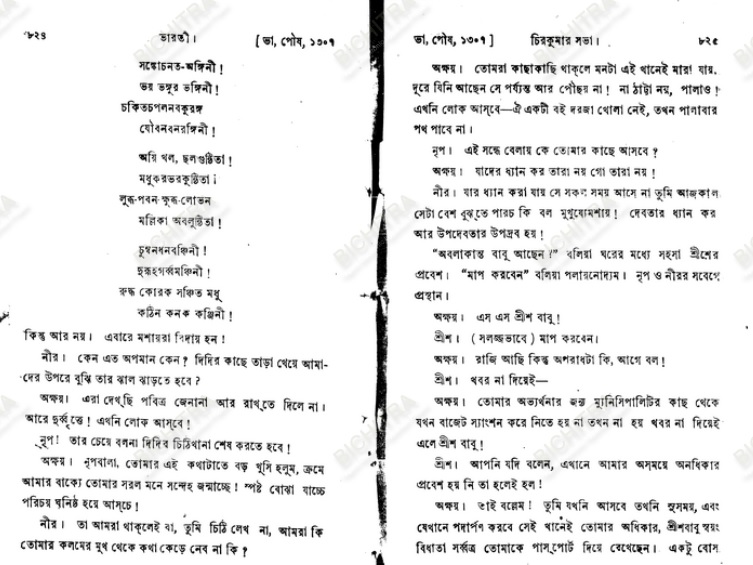 ৮২৪ ভারতী। [ ভা, পৌষ, ১৩০৭
সঙ্কোচনত-অঙ্গিনী!
ভয় ভঙ্গুর ভঙ্গিনী!
চকিতচপলনবকুরঙ্গ
যৌবনবনরঙ্গিনী!
অয়ি খল, ছলগুণ্ঠিতা!
মধুকরভরকুণ্ঠিতা!
লুব্ধ-পবন-ক্ষুব্ধ-লোভন
মল্লিকা অবলুণ্ঠিতা!
চুম্বনধনবঞ্চিনী!
দুরূহগর্ব্বমঞ্চিনী!
রুদ্ধ কোরক সঞ্চিত মধু
কঠিন কনক কঞ্জিনী!
কিন্তু আর নয়। এবারে মশায়রা বিদায় হন!
নীর। কেন এত অপমান কেন? দিদির কাছে তাড়া খেয়ে আমা-
দের উপরে বুঝি তার ঝাল ঝাড়তে হবে?
অক্ষয়। এরা দেখ্‌ছি পবিত্র জেনানা আর রাখ্‌তে দিলে না।
আরে দুর্ব্বৃত্তে! এখনি লোক আস্‌বে!
নৃপ। তার চেয়ে বলনা দিদির চিঠিখানা শেষ করতে হবে!
অক্ষয়। নৃপবালা, তোমার এই কথাটাতে বড় খুসি হলুম, ক্রমে
আমার বাক্যে তোমার সরল মনে সন্দেহ জন্মাচ্ছে! স্পষ্ট বোঝা যাচ্চে
পরিচয় ঘনিষ্ঠ হয়ে আস্‌চে!
নীর। তা আমরা থাক্‌লেই বা, তুমি চিঠি লেখ না, আমরা কি
তোমার কলমের মুখ থেকে কথা কেড়ে নেব না কি?
ভা, পৌষ, ১৩০৭ ] চিরকুমার সভা। ৮২৫
অক্ষয়। তোমরা কাছাকাছি থাক্‌লে মনটা এই খানেই মারা যায়,
দূরে যিনি আছেন সে পর্য্যন্ত আর পৌঁছয় না! না ঠাট্টা নয়, পালাও!
এখনি লোক আস্‌বে—ঐ একটী বই দরজা খোলা নেই, তখন পালাবার
পথ পাবে না।
নৃপ। এই সন্ধে বেলায় কে তোমার কাছে আসবে?
অক্ষয়। যাদের ধ্যান কর তারা নয় গো তারা নয়!
নীর। যার ধ্যান করা যায় সে সকল সময় আসে না তুমি আজকাল
সেটা বেশ বুঝ্‌তে পারচ কি বল মুখুয্যেমশায়! দেবতার ধ্যান কর
আর উপদেবতার উপদ্রব হয়!
“অবলাকান্ত বাবু আছেন?” বলিয়া ঘরের মধ্যে সহসা শ্রীশের
প্রবেশ। “মাপ করবেন” বলিয়া পলায়নোদ্যম। নৃপ ও নীরর সবেগে
প্রস্থান।
অক্ষয়। এস এস শ্রীশ বাবু!
শ্রীশ। ( সলজ্জভাবে ) মাপ করবেন।
অক্ষয়। রাজি আছি কিন্তু অপরাধটা কি, আগে বল!
শ্রীশ। খবর না দিয়েই—
অক্ষয়। তোমার অভ্যর্থনার জন্য ম্যুনিসিপালিটির কাছ থেকে
যখন বাজেট স্যাংশন করে নিতে হয় না তখন না হয় খবর না দিয়েই
এলে শ্রীশ বাবু!
শ্রীশ। আপনি যদি বলেন, এখানে আমার অসময়ে অনধিকার
প্রবেশ হয় নি তা হলেই হল!
অক্ষয়। তাই বল্লেম! তুমি যখনি আসবে তখনি সুসময়, এবং
যেখানে পদার্পণ করবে সেই খানেই তোমার অধিকার, শ্রীশবাবু স্বয়ং
বিধাতা সর্ব্বত্র তোমাকে পাস্‌পোর্ট দিয়ে রেখেছেন। একটু বোস
BICHITRA